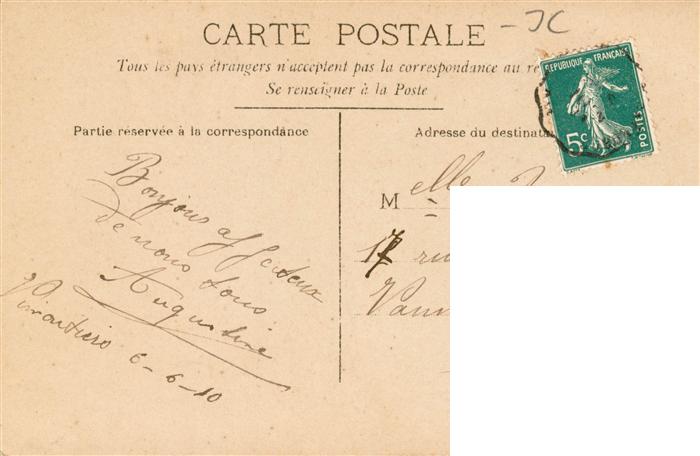 - JC
CARTE POSTALE
Tous les pays étrangers n'acceptent pas la correspondance au
Se renseigner à la Poste
RÉPUBLIQUE FRANÇAISE
5c
POSTES
Partie réservée à la correspondance
Adresse du
Bonjour affectueux
de nous tous
Augustine
Vimoutiers 6-6-10
M elle
17 ru